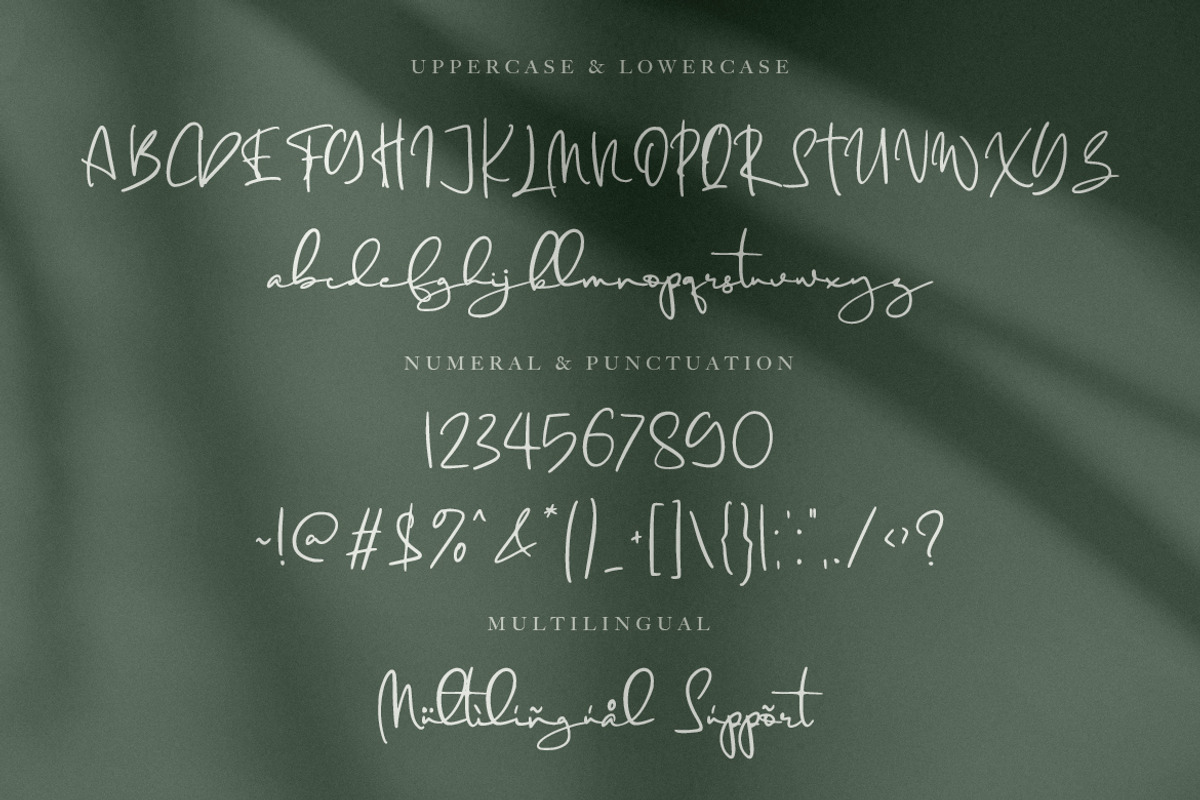 UPPERCASE & LOWERCASE
ABCDEFGHIJKLMNOPQRSTUVWXYZ
abcdefghijklmnopqrstuvwxyz
NUMERAL & PUNCTUATION
1234567890
~!@#$%^&*()_+[]\{}|;':",./<>?
MULTILINGUAL
Mültìlíñgúål Súppõrt